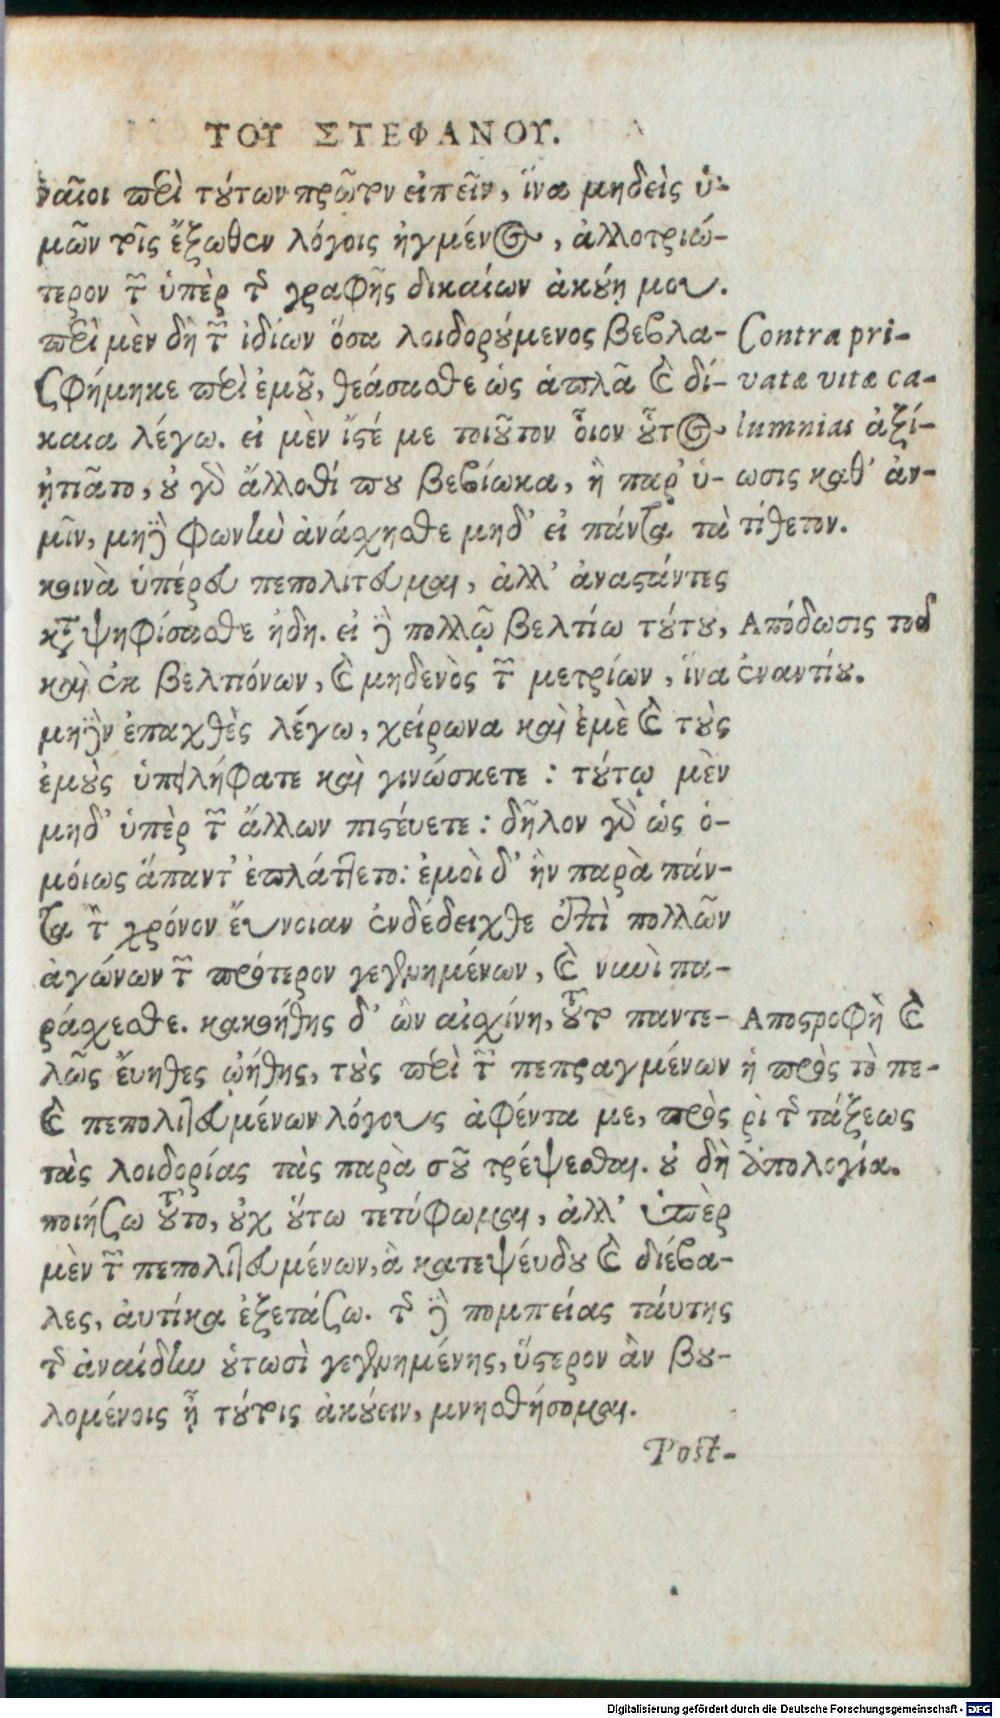 ΤΟΥ ΣΤΕΦΑΝΟΥ.
ναῖοι περὶ τούτων πρῶτον εἰπεῖν, ἵνα μηδεὶς ὑ-
μῶν τοῖς ἔξωθεν λόγοις ἠγμένος, ἀλλοτριώ-
τερον τῶν ὑπὲρ τῆς γραφῆς δικαίων ἀκούῃ μου.
περὶ μὲν δὴ τῶν ἰδίων ὅσα λοιδορούμενος βεβλα-
σφήμηκε περὶ ἐμοῦ, θεάσασθε ὡς ἁπλᾶ καὶ δί-
καια λέγω. εἰ μὲν ἴστέ με τοιοῦτον οἷον οὗτος
ᾐτιᾶτο, οὐ γὰρ ἄλλοθί που βεβίωκα, ἢ παρ' ὑ-
μῖν, μηδὲ φωνὴν ἀνάσχησθε μηδ' εἰ πάντα τὰ
κοινὰ ὑπέρευ πεπολίτευμαι, ἀλλ' ἀναστάντες
καταψηφίσασθε ἤδη. εἰ δὲ πολλῷ βελτίω τούτου,
καὶ ἐκ βελτιόνων, καὶ μηδενὸς τῶν μετρίων, ἵνα
μηδὲν ἐπαχθὲς λέγω, χείρωνα καὶ ἐμὲ καὶ τοὺς
ἐμοὺς ὑπειλήφατε καὶ γινώσκετε : τούτῳ μὲν
μηδ' ὑπὲρ τῶν ἄλλων πιστεύετε : δῆλον γὰρ ὡς ὁ-
μοίως ἅπαντ' ἐπλάττετο: ἐμοὶ δ' ἣν παρὰ πάν-
τα τὸν χρόνον εὔνοιαν ἐνδέδειχθε ἐπὶ πολλῶν
ἀγώνων τῶν πρότερον γεγενημένων, καὶ νυνὶ πα-
ράσχεσθε. κακοήθης δ' ὢν αἰσχίνη, τοῦτο παντε-
λῶς εὔηθες ᾠήθης, τοὺς περὶ τῶν πεπραγμένων
καὶ πεπολιτευμένων λόγους ἀφέντα με, πρὸς
τὰς λοιδορίας τὰς παρὰ σοῦ τρέψεσθαι. οὐ δὴ
ποιήσω τοῦτο, οὐχ οὕτω τετύφωμαι, ἀλλ' ὑπὲρ
μὲν τῶν πεπολιτευμένων, ἃ κατεψεύδου καὶ διέβα-
λες, αὐτίκα ἐξετάσω. τῆς δὲ πομπείας ταύτης
τῆς ἀναίδην οὑτωσὶ γεγενημένης, ὕστερον ἂν βου-
λομένοις ᾖ τούτοις ἀκούειν, μνησθήσομαι.
Post-
Contra pri-
vatæ vitæ ca-
lumnias ἀξί-
ωσις καθ' ἀν-
τίθετον.
Ἀπόδωσις τοῦ
ἐναντίου.
Ἀποστροφὴ καὶ
ἡ πρὸς τὸ πε-
ρὶ τῆς τάξεως
ἀπολογία.
Digitalisierung gefördert durch die Deutsche Forschungsgemeinschaft - DFG